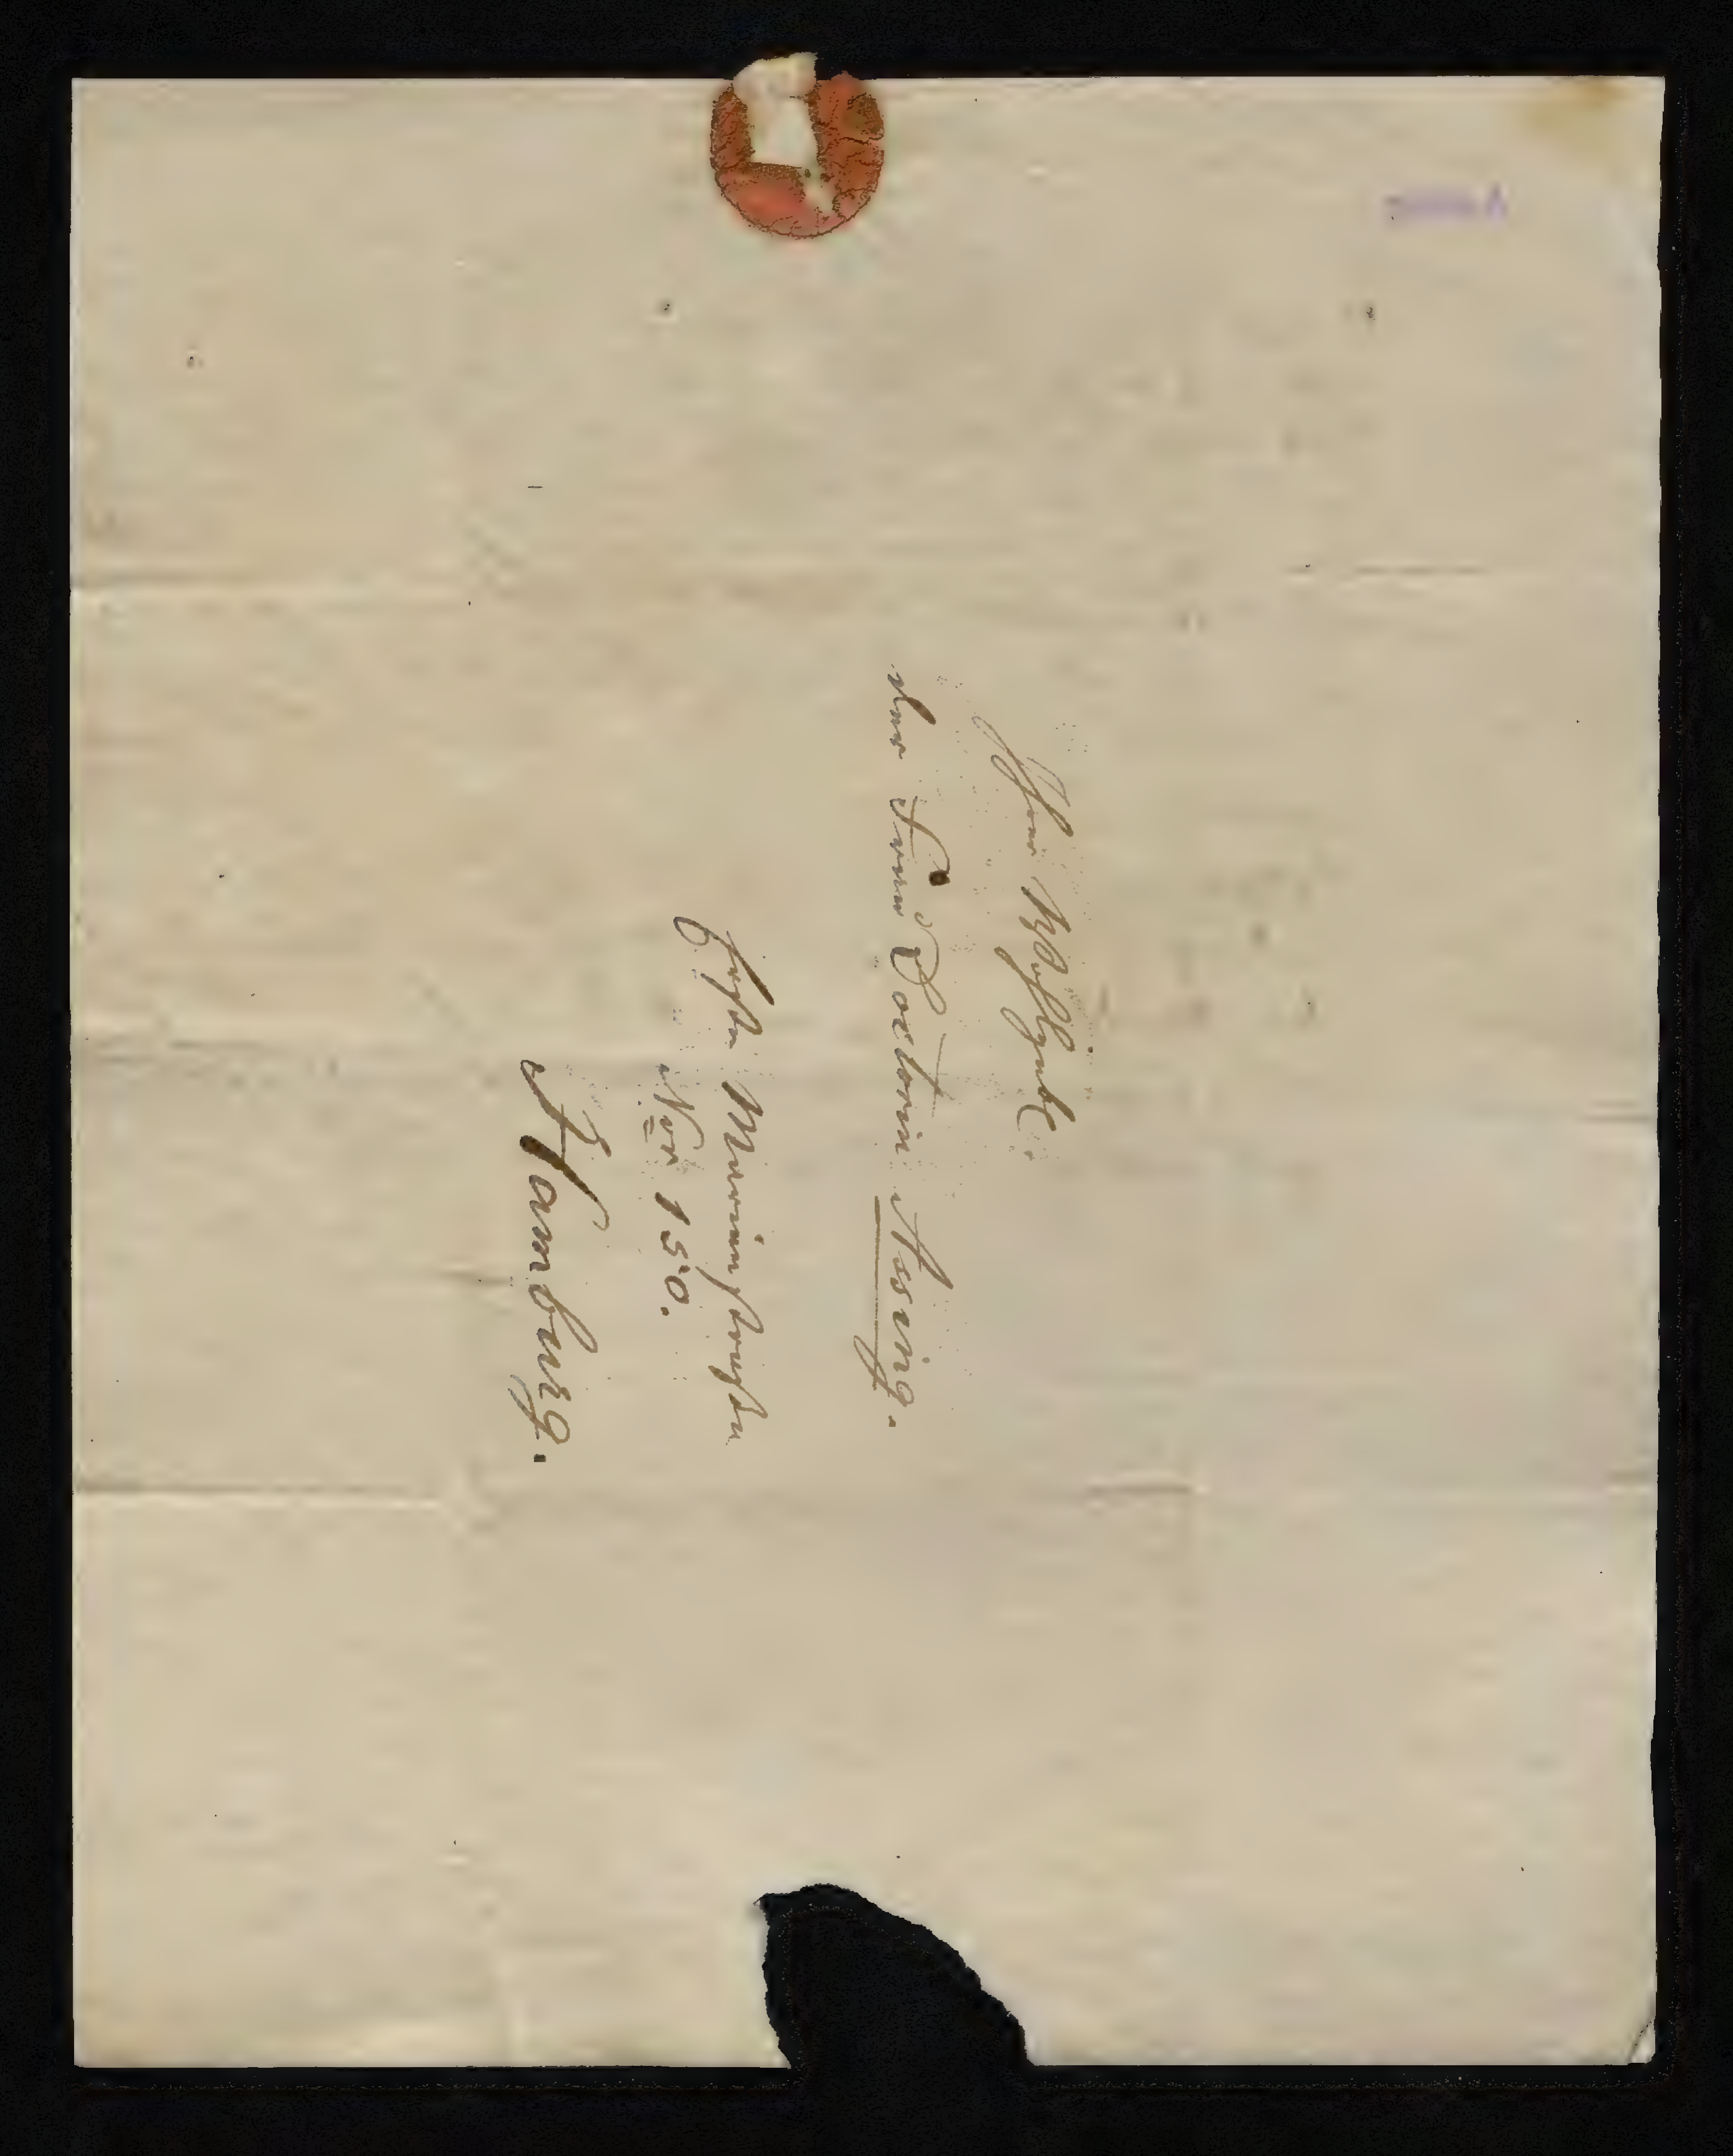 Ihrer Wohlgeb
der Frau Doctorin Assing.
hohe Marienstraße
Nro 150.
Hamburg.